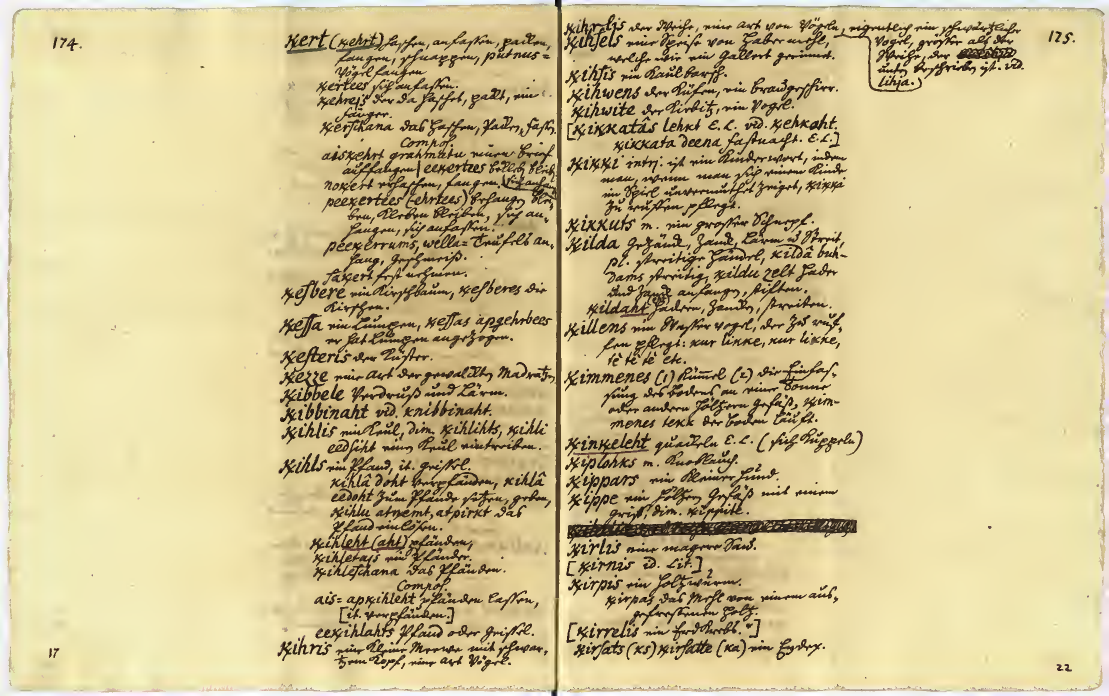 174.
Kert (Kehrt) haschen, anfassen, packen,
fangen, schnappen, putnus=
Vögel fangen
Kertees sich anfassen.
Kehrejs der da haschet, packt, ein
Fänger.
Kerschana das Haschen, Packen, Fassen
Compos.
aiskehrt grahmatu einen Brief
auffangen | eekertees
nokert erhaschen, fangen,
peekertees (ehrtees) behangen blei-
ben, Kleben bleiben, sich an-
hangen, sich anfassen.
peekerrums, wella= Teufels an-
hang, Geschmeiß.
saķert fest nehmen.
Kesbere ein Kirschbaum, Kesberes die
Kirschen.
Kessa ein Lumpen, Kessas apgehrbees
er hat Lumpen angezogen.
Kesteris der Küster.
Kezze eine Art der gewalkten Madratzen
Kibbele Verdruß und Lärm.
Kibbinaht vid. knibbinaht.
Kihlis ein Keul, dim. Kihlihts, Kihli
eedsiht einen Keul eintreiben.
Kihls ein Pfand, it. Geissel.
Kihlâ doht verpfänden, Kihlâ
eedoht zum Pfande setzen, geben,
Kihlu atņemt, atpirkt das
Pfand einlösen.
Kihleht (aht) pfänden,
Kihletajs ein Pfänder.
Kihleschana das Pfänden.
Compos.
ais= apkihleht pfänden lassen,
[it. verpfänden.]
eekihlahts Pfand oder Geissel.
Kihris eine kleine Meewe mit schwar-
tzem Kopf, eine Art Vögel.
17
175.
Kihrelis der Weihe, eine Art von Vögeln, eigentlich ein schwärtzliche
Vogel, grösser als der
Weihe, der
unten beschrieben ist. vid.
lihja.)
Kihsels eine Speise von Habermehl,
welche wie ein Gallert gerinnet.
Kihsis ein Kaulbarsch.
Kihwens der Küfen, ein Braugeschirr.
Kihwite der Kiebitz, ein Vogel.
[Kikkatâs lehkt E. L. vid. Kehkaht.
Kikkata deena Fastnacht. E. L.]
Kikki interj: ist ein Kinderwort, indem
man, wenn man sich einem Kinde
im Spiel unvermuthet zeiget, Kikki
zu ruffen pflegt.
Kikkuts m. ein grosser Schnepf.
Kilda Gezänck, Zanck, Lärm u Streit,
pl. streitige Händel, Kildâ buh-
dams streitig, Kildu zelt Hader
und Zanck anfangen, stiften.
Kildaht hadern, zancken, streiten.
Killens ein Wasser vogel, der zu ruf-
fen pflegt: kur likke, kur likke,
tê tê tê etc.
Kimmenes (1) Kümmel (2) die Einfas-
sung des Bodens an einer Tonne
oder andern höltzern Gefäß, Kim-
menes tekk der Boden läuft.
Kinķeleht quackeln E. L. (sich Kuppeln)
Kiplohks m. Knoblauch.
Kippars ein kleiner Hund.
Kippe ein höltzern Gefäß mit einem
griff, dim. Kippite.
Kirlis eine magere Sau.
[Kirnis id. Lit.]
Kirpis ein Holtzwurm.
Kirpas das Mehl von einem aus-
gefressenen Holtz.
[Kirrelis ein Erdkrebs.]
Kirsats (ks) Kirsatte (ka) ein Eydex.
22